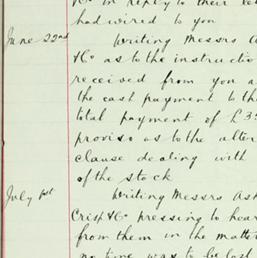 to in reply to their let
had wired to you
June 22nd Writing Messrs A
& Co as to the instructio
received from you a
the cash payment to th
total payment of £35
proviso as to the alter
clause dealing with
of the stock
July 1st Writing Messrs Ash
Crisp & Co pressing to hear
from them in the matter
no time was to be lost